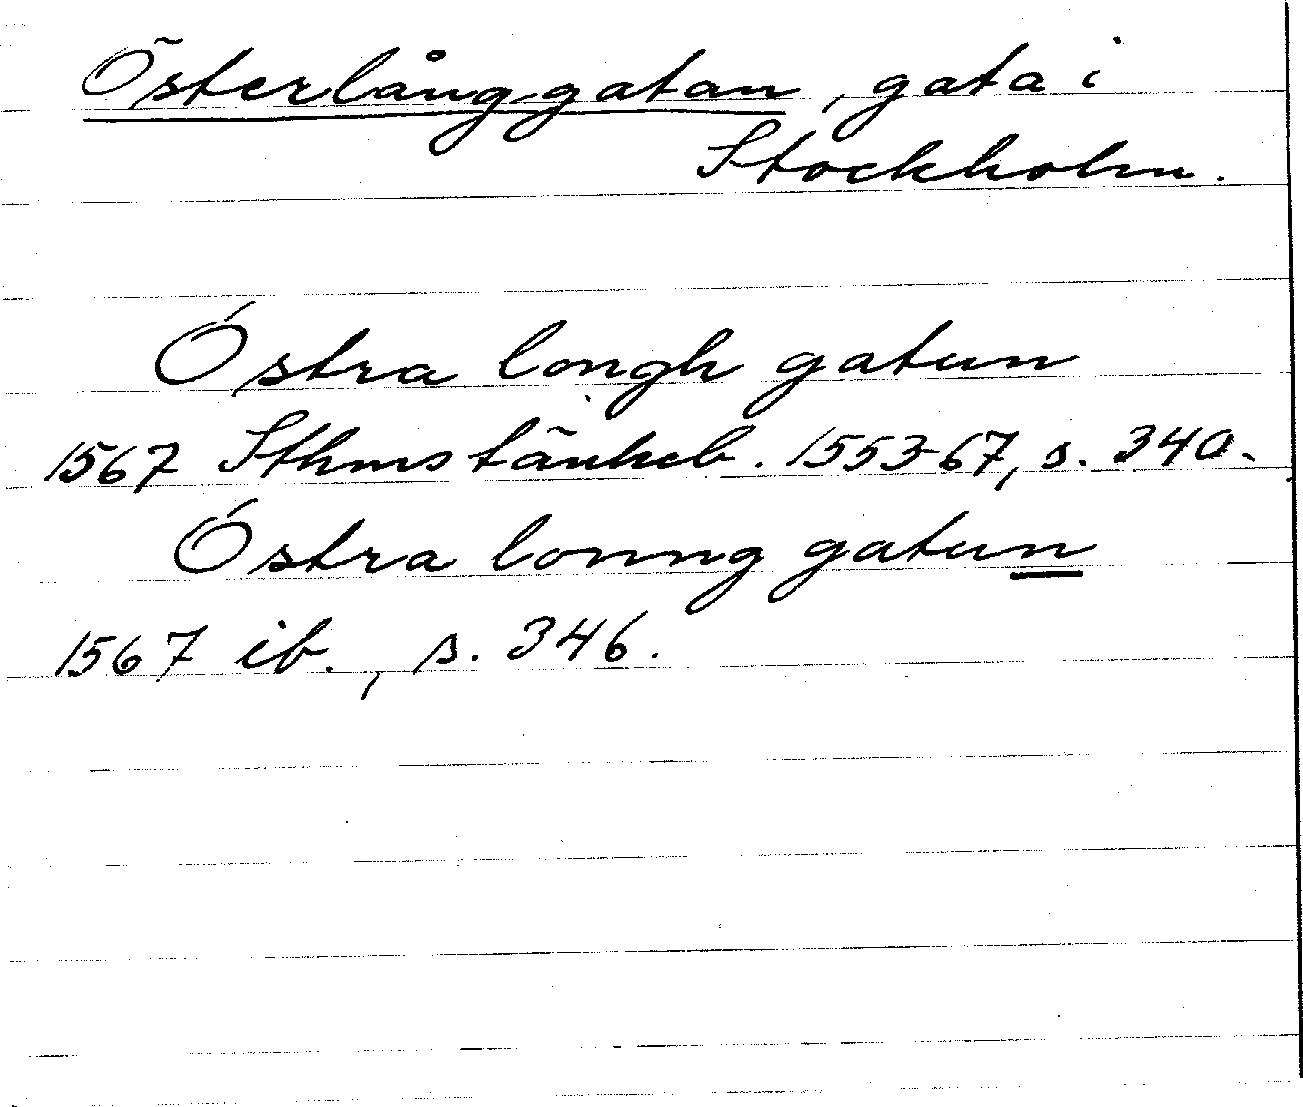 Österlånggatan, gata i
Stockholm.
Óstra longh gatun
1567 Sthms tänkeb. 1553-67, s. 340.
Óstra lonng gatun
1567 ib., s. 346.